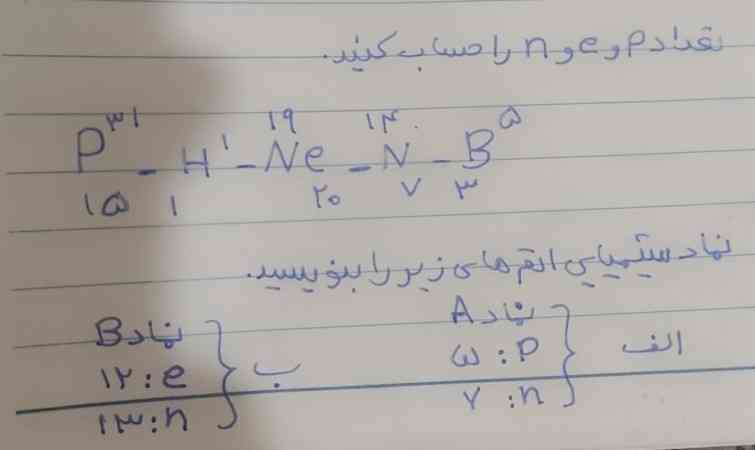 تعداد p و e و n را حساب کنید.
P³¹ - H¹ - Ne - N - B
۱۹ ۱۴ ۵
۱۵ ۱ ۲۰ ۷ ۳
نماد شیمیایی اتم های زیر را بنویسید.
الف } نماد A
p : ۵
n : ۷
ب } نماد B
e : ۱۲
n : ۱۳